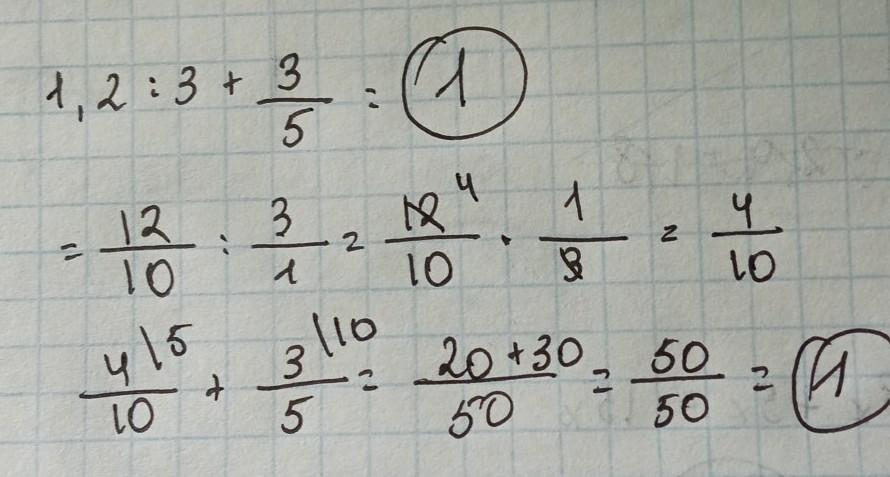 1,2 : 3 + 3/5 = 1
= 12/10 : 3/1 = 12/10 4 · 1/3 = 4/10
4\5/10 + 3\10/5 = 20+30/50 = 50/50 = 1